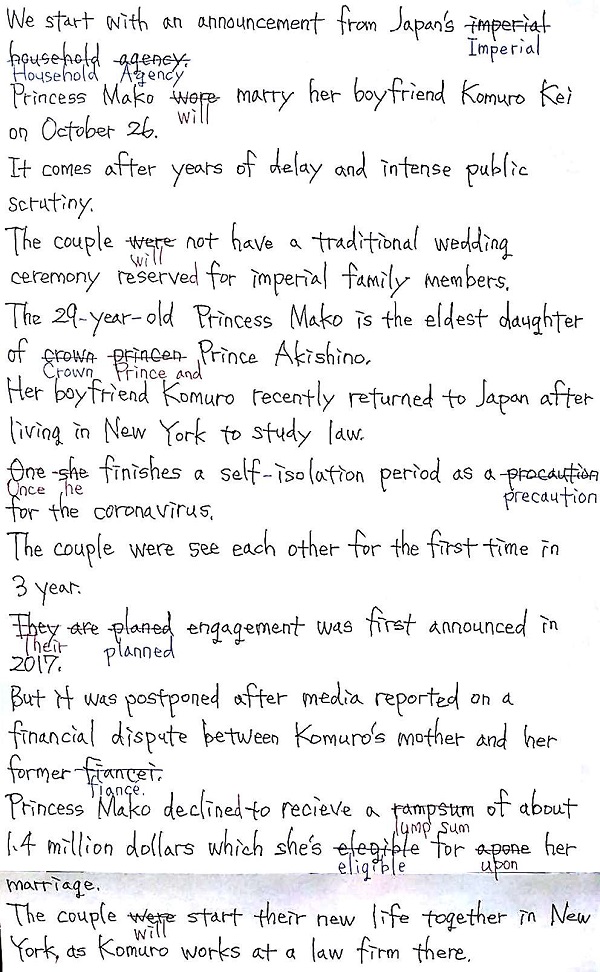 We start with an announcement from Japan's imperial
Imperial
household agency.
Household Agency
Princess Mako were marry her boyfriend Komuro Kei
will
on October 26.
It comes after years of delay and intense public
scrutiny.
The couple were not have a traditional wedding
will
ceremony reserved for imperial family members.
The 29-year-old Princess Mako is the eldest daughter
of crown princen Prince Akishino.
Crown Prince and
Her boyfriend Komuro recently returned to Japan after
living in New York to study law.
One she finishes a self-isolation period as a procaution
Once he precaution
for the coronavirus.
The couple were see each other for the first time in
3 year.
They are planed engagement was first announced in
Their planned
2017.
But it was postponed after media reported on a
financial dispute between Komuro's mother and her
former fiancei.
fiance.
Princess Mako declined to recieve a rampsum of about
lump sum
1.4 million dollars which she's elegible for apone her
eligible upon
marriage.
The couple were start their new life together in New
will
York, as Komuro works at a law firm there.